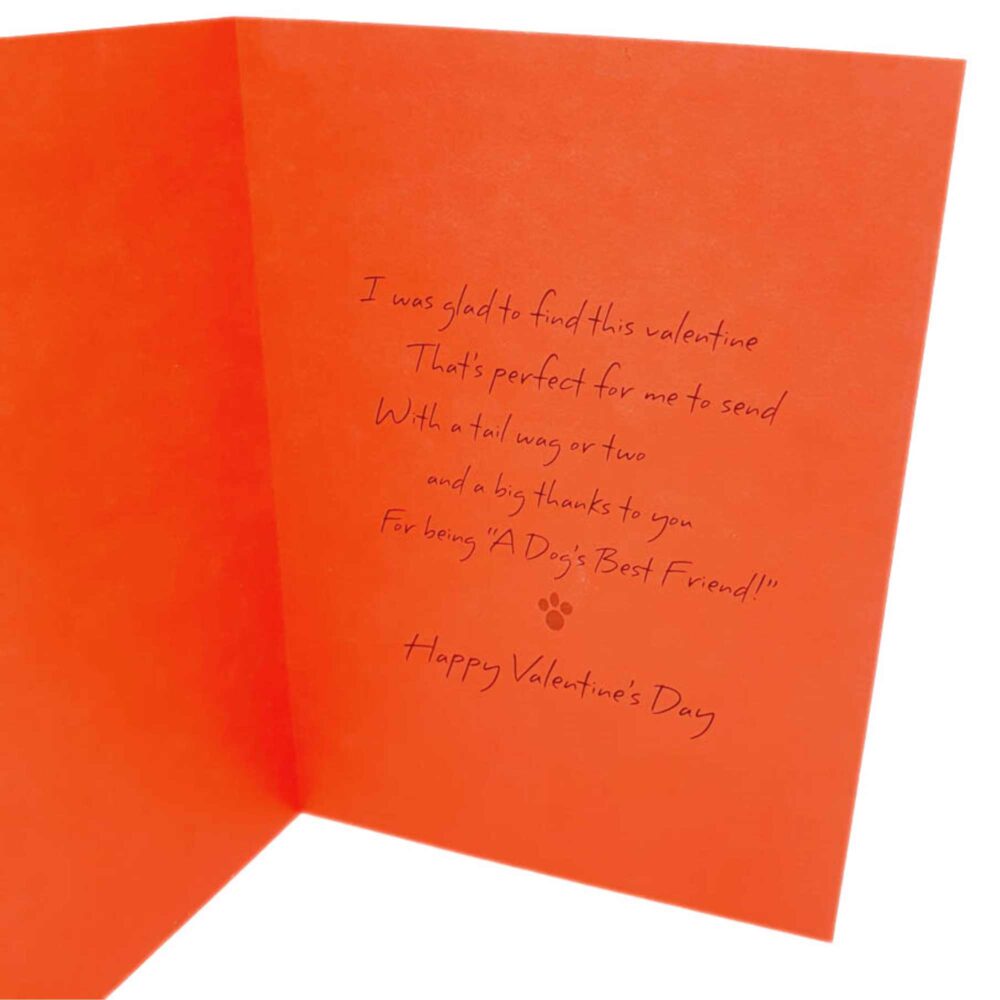 I was glad to find this valentine
That's perfect for me to send
With a tail wag or two
and a big thanks to you
For being "A Dog's Best Friend!"
Happy Valentine's Day